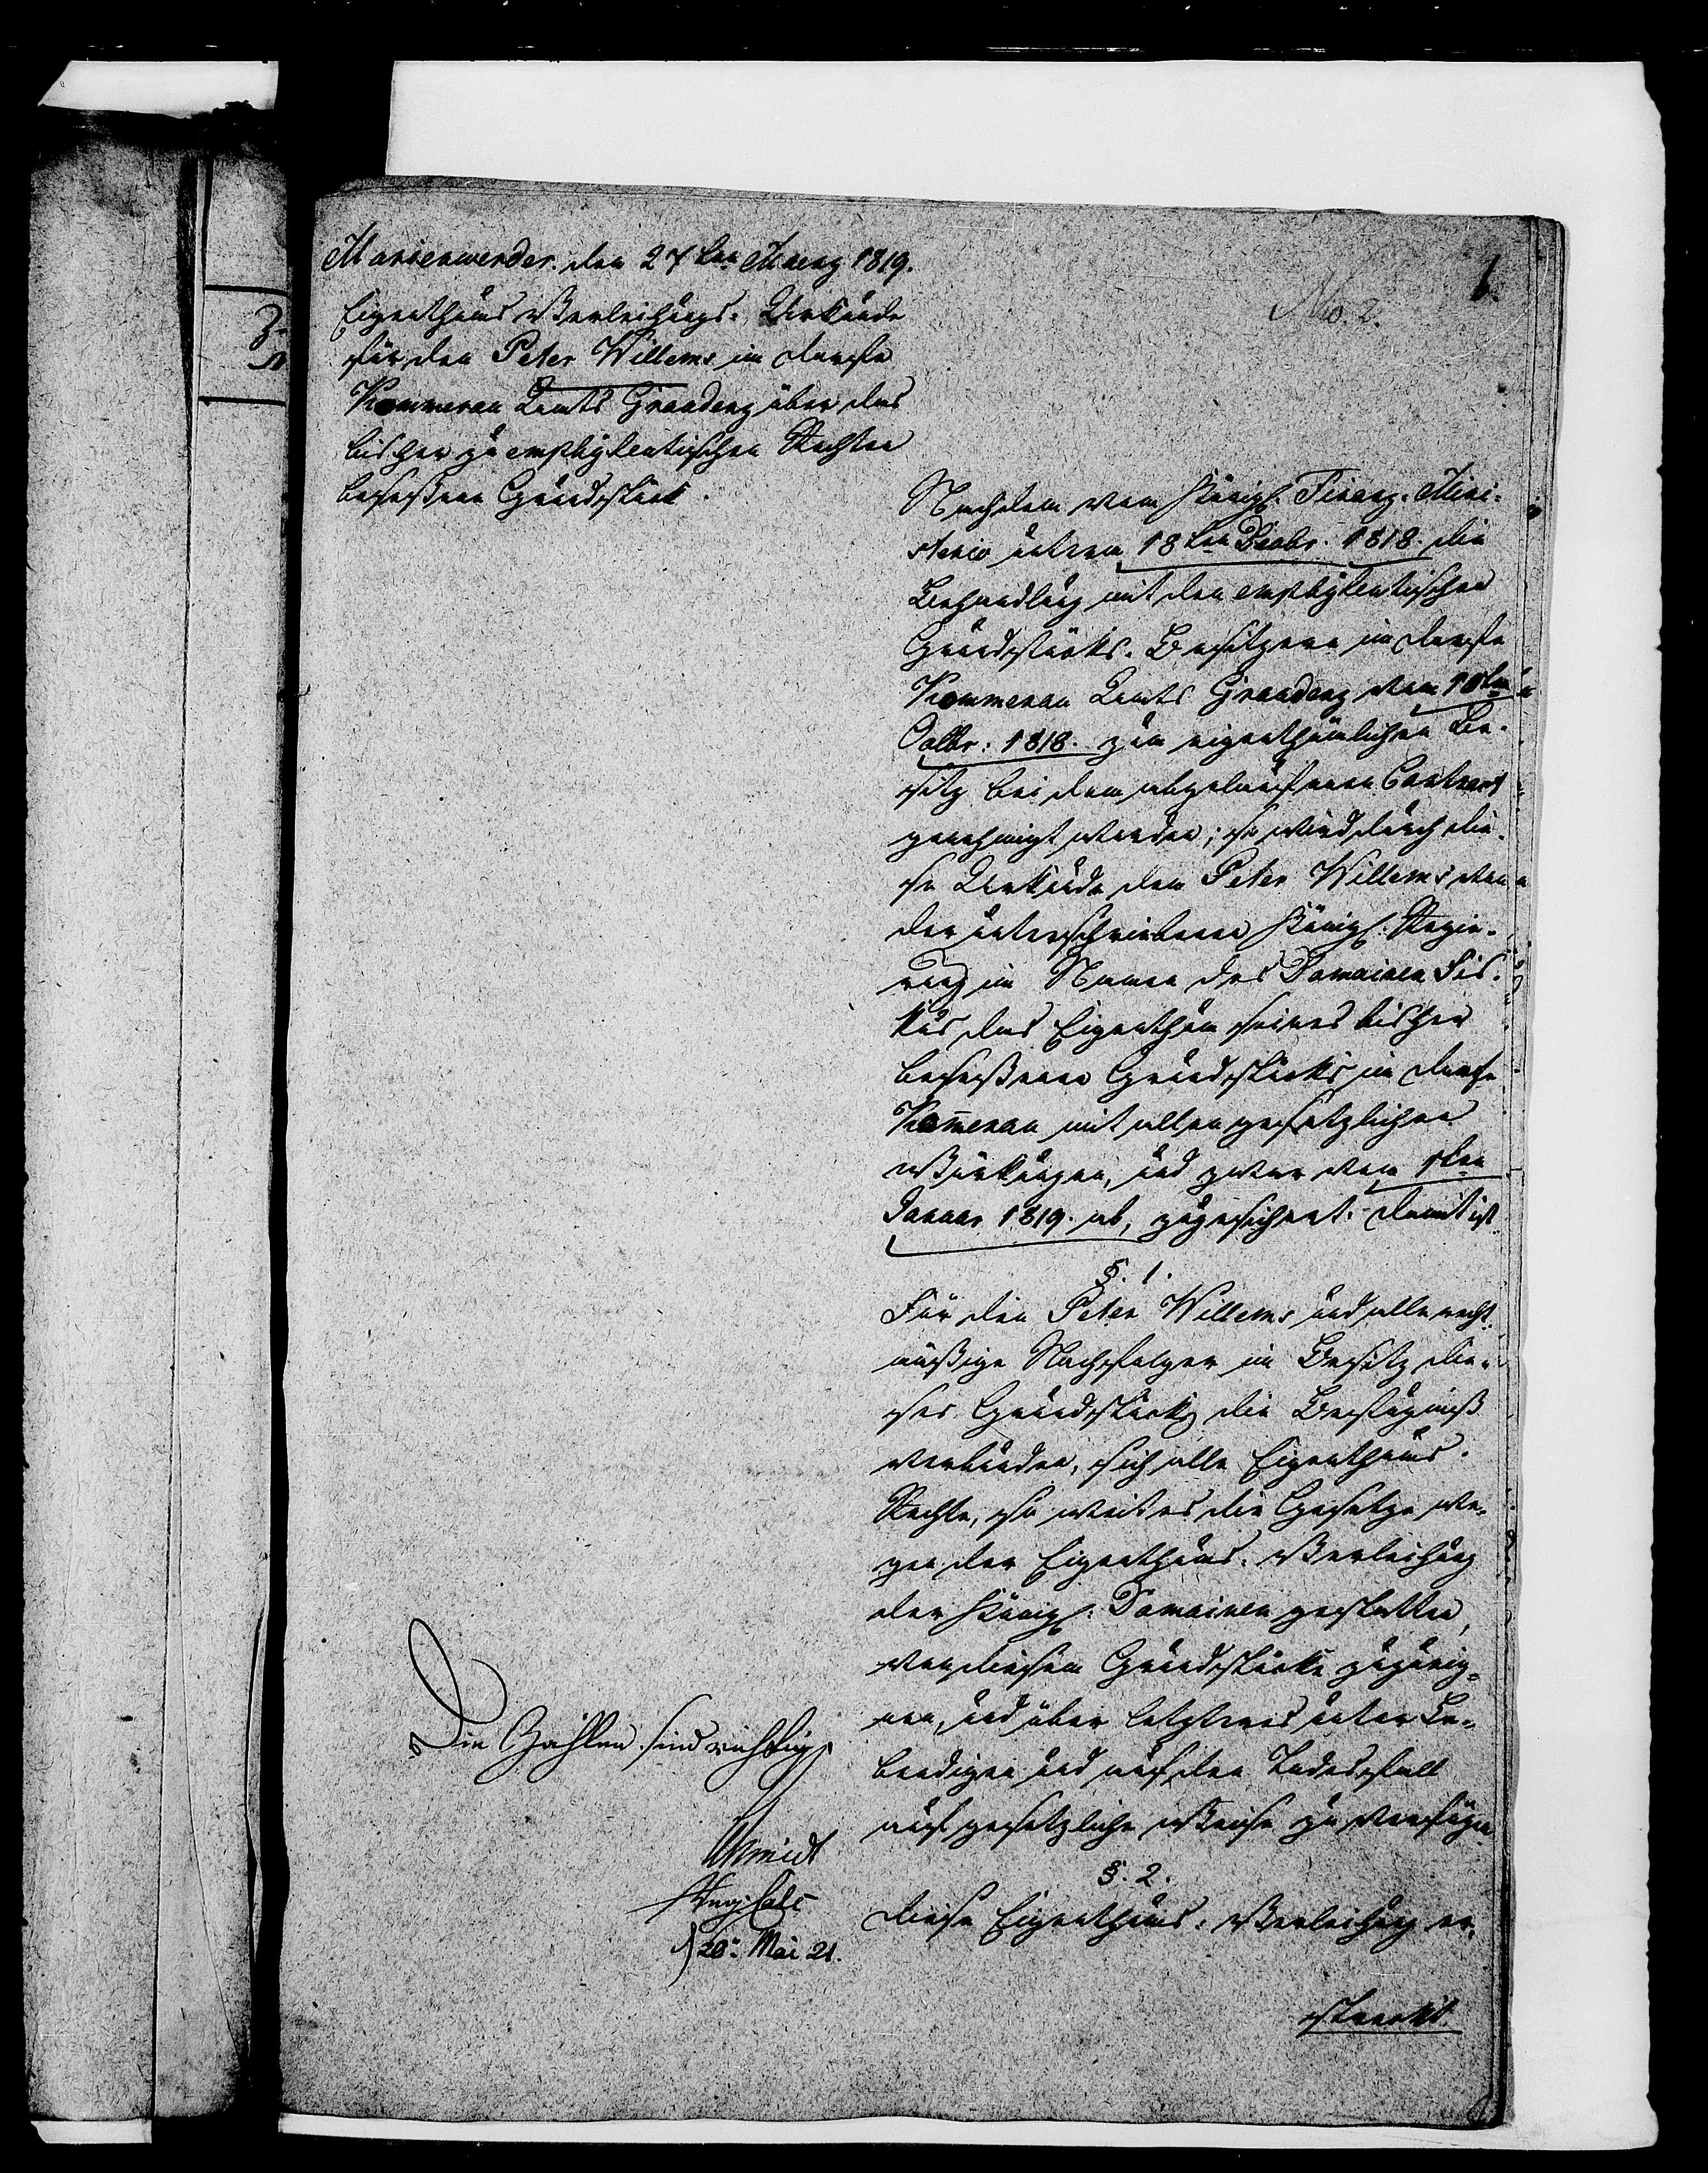 Marienwerder den 27ten Maerz 1819.
Eigenthums Verleihungs-Urkunde
für den Peter Willems im Dorfe
Kommerau Amts Graudenz über das
bisher zu emphyteutischen Rechten
beseßene Grundstück.
1.
No. 2.
Nachdem vom Königl. Finanz-Mini-
sterio unterm 18ten Decbr. 1818. die
Behandlung mit den emphyteutischen
Grundstücks-Besitzern im Dorfe
Kommerau Amts Graudenz vom 10ten
Octbr: 1818. zum eigenthümlichen Be-
sitz bei dem abgelaufenen Contract
genehmigt worden; so wird durch die-
se Urkunde dem Peter Willems von
der unterschriebenen Königl. Regie-
rung im Namen des Domainen Fis-
kus das Eigenthum seines bisher
beseßenen Grundstücks im Dorfe
Kom̄erau mit allen gesetzlichen
Würkungen, und zwar vom 1ten
Januar 1819. ab, zugesichert. Damit ist
§. 1.
Für den Peter Willems und alle recht-
mäßige Nachfolger im Besitz die-
ses Grundstücks die Befugniß
verbunden, sich alle Eigenthums-
Rechte, so weit es die Gesetze we-
gen der Eigenthums-Verleihung
der Königl. Domainen gestatten,
von diesem Grundstücke zuzueig-
nen, und über letzteres unter Le-
bendigen und auf den Todesfall
auf gesetzliche Weise zu verfügen
§. 2.
Diese Eigenthums-Verleihung er-
streckt
Die Zahlen sind richtig
Schmidt
20n Mai 21.